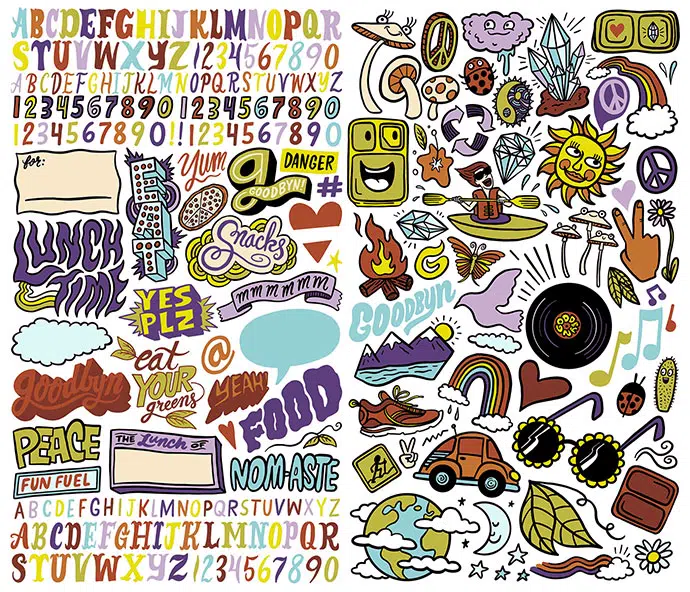 ABCDEFGHIJKLMNOPQR
STUVWXYZ 1234567890
ABCDEFGHIJKLMNOPQRSTUVWXYZ
1234567890 1234567890
1234567890!!1234567890
for:
Yum
g
GOODBYN!
DANGER
#
LUNCH
TIME
Snacks
YES
PLZ
mmmmmm
goodbyn
eat
YOUR
greens
@
YEAH
FOOD
PEACE
FUN FUEL
THE Lunch OF
NOM-ASTE
ABCDEFGHIJKLMNOPQRSTUVWXYZ
ABCDEFGHIJKLMNOPQR
STUVWXYZ 1234567890
G
GOODBYN